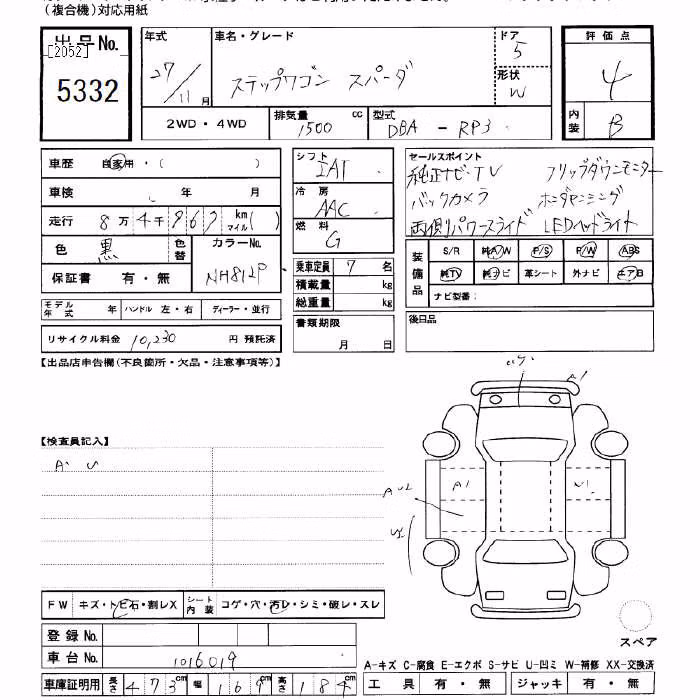 (複合機)対応用紙
出品No. 年式 車名・グレード ドア 評価点
[2052] 5
5332 27/11月 ステップワゴン スパーダ 形状 W 4
2WD・4WD 排気量 1500 cc 型式 DBA - RP3 内装 B
車歴 自家用・( ) シフト IAT セールスポイント
純正ナビ・TV フリップダウンモニター
車検 年 月 冷房 AAC バックカメラ ホンダセンシング
走行 8万4千967km マイル( ) 燃料 G 両側パワースライド LEDヘッドライト
色 黒 色替 カラーNo. NH812P 乗車定員 7名 装備品 S/R 純A/W P/S P/W ABS
保証書 有・無 積載量 kg 純TV 純ナビ 革シート 外ナビ エアB
総重量 kg ナビ型番:
モデル年式 年 ハンドル 左・右 ディーラー・並行 書類期限 月 日 後日品
リサイクル料金 10,230 円 預託済
【出品店申告欄(不良箇所・欠品・注意事項等)】
A1
【検査員記入】
A・U
A U2 A1 U1
U2
FW キズ・トビ石・割レX シート内装 コゲ・穴・汚レ・シミ・破レ・スレ
登録No.
スペア
車台No. 1016019
A-キズ C-腐食 E-エクボ S-サビ U-凹ミ W-補修 XX-交換済
車庫証明用 長さ 473cm 幅 169cm 高さ 184cm 工具 有・無 ジャッキ 有・無